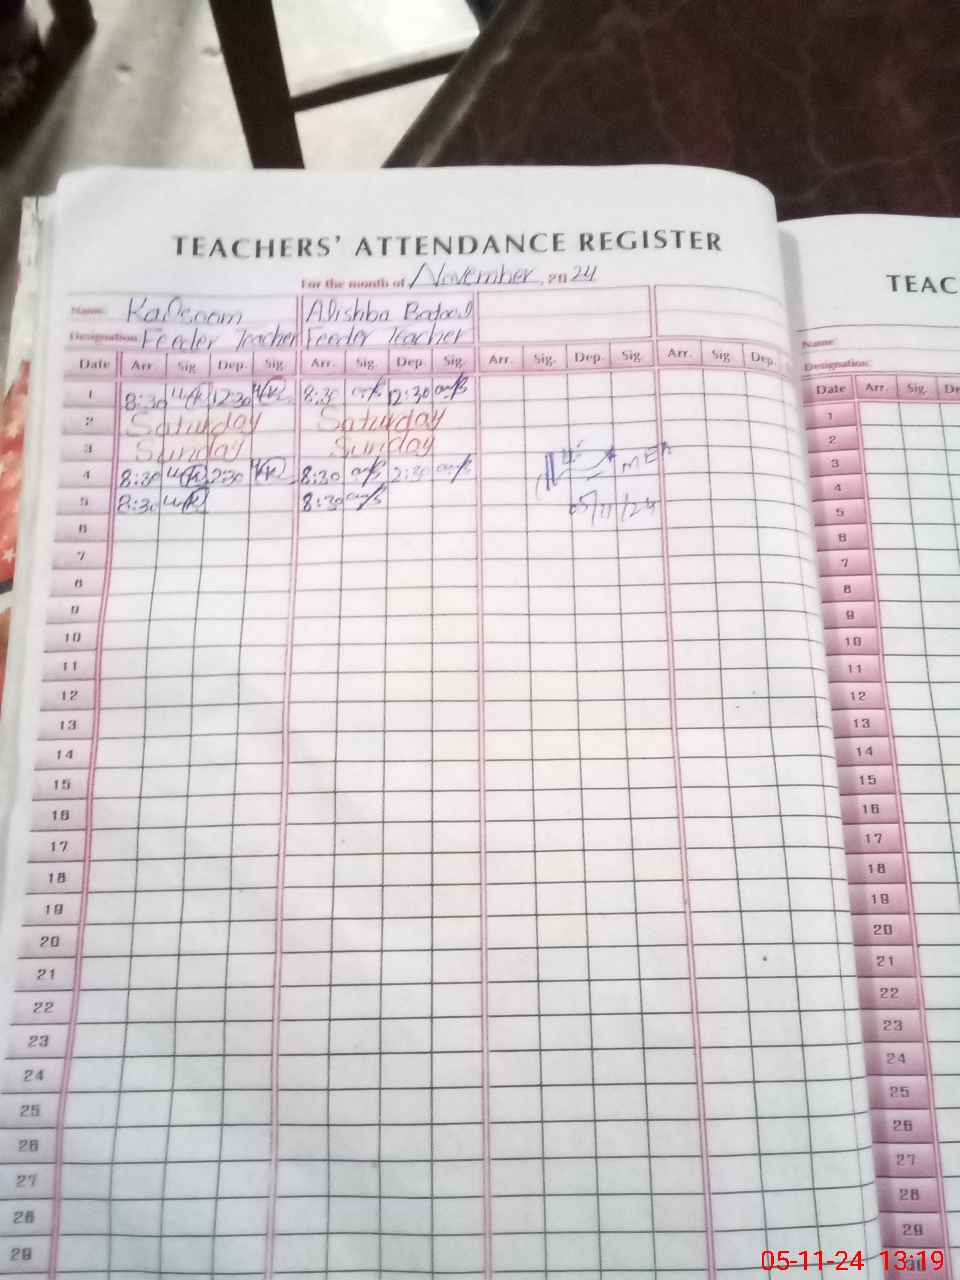 TEACHERS' ATTENDANCE REGISTER
For the month of November, 2024
Name: Kalsoom Alishba Batool
Designation: Feeder Teacher Feeder Teacher
Date Arr. Sig. Dep. Sig. Arr. Sig. Dep. Sig. Arr. Sig. Dep. Sig. Arr. Sig. Dep.
1 8:30 12:30 8:30 12:30
2 Saturday Saturday
3 Sunday Sunday
4 8:30 2:30 8:30 2:30
5 8:30 8:30
05/11/24
6
7
8
9
10
11
12
13
14
15
16
17
18
19
20
21
22
23
24
25
26
27
28
29
TEAC
Name:
Designation:
Date Arr. Sig. De
1
2
3
4
5
6
7
8
9
10
11
12
13
14
15
16
17
18
19
20
21
22
23
24
25
26
27
28
29
05-11-24 13:19